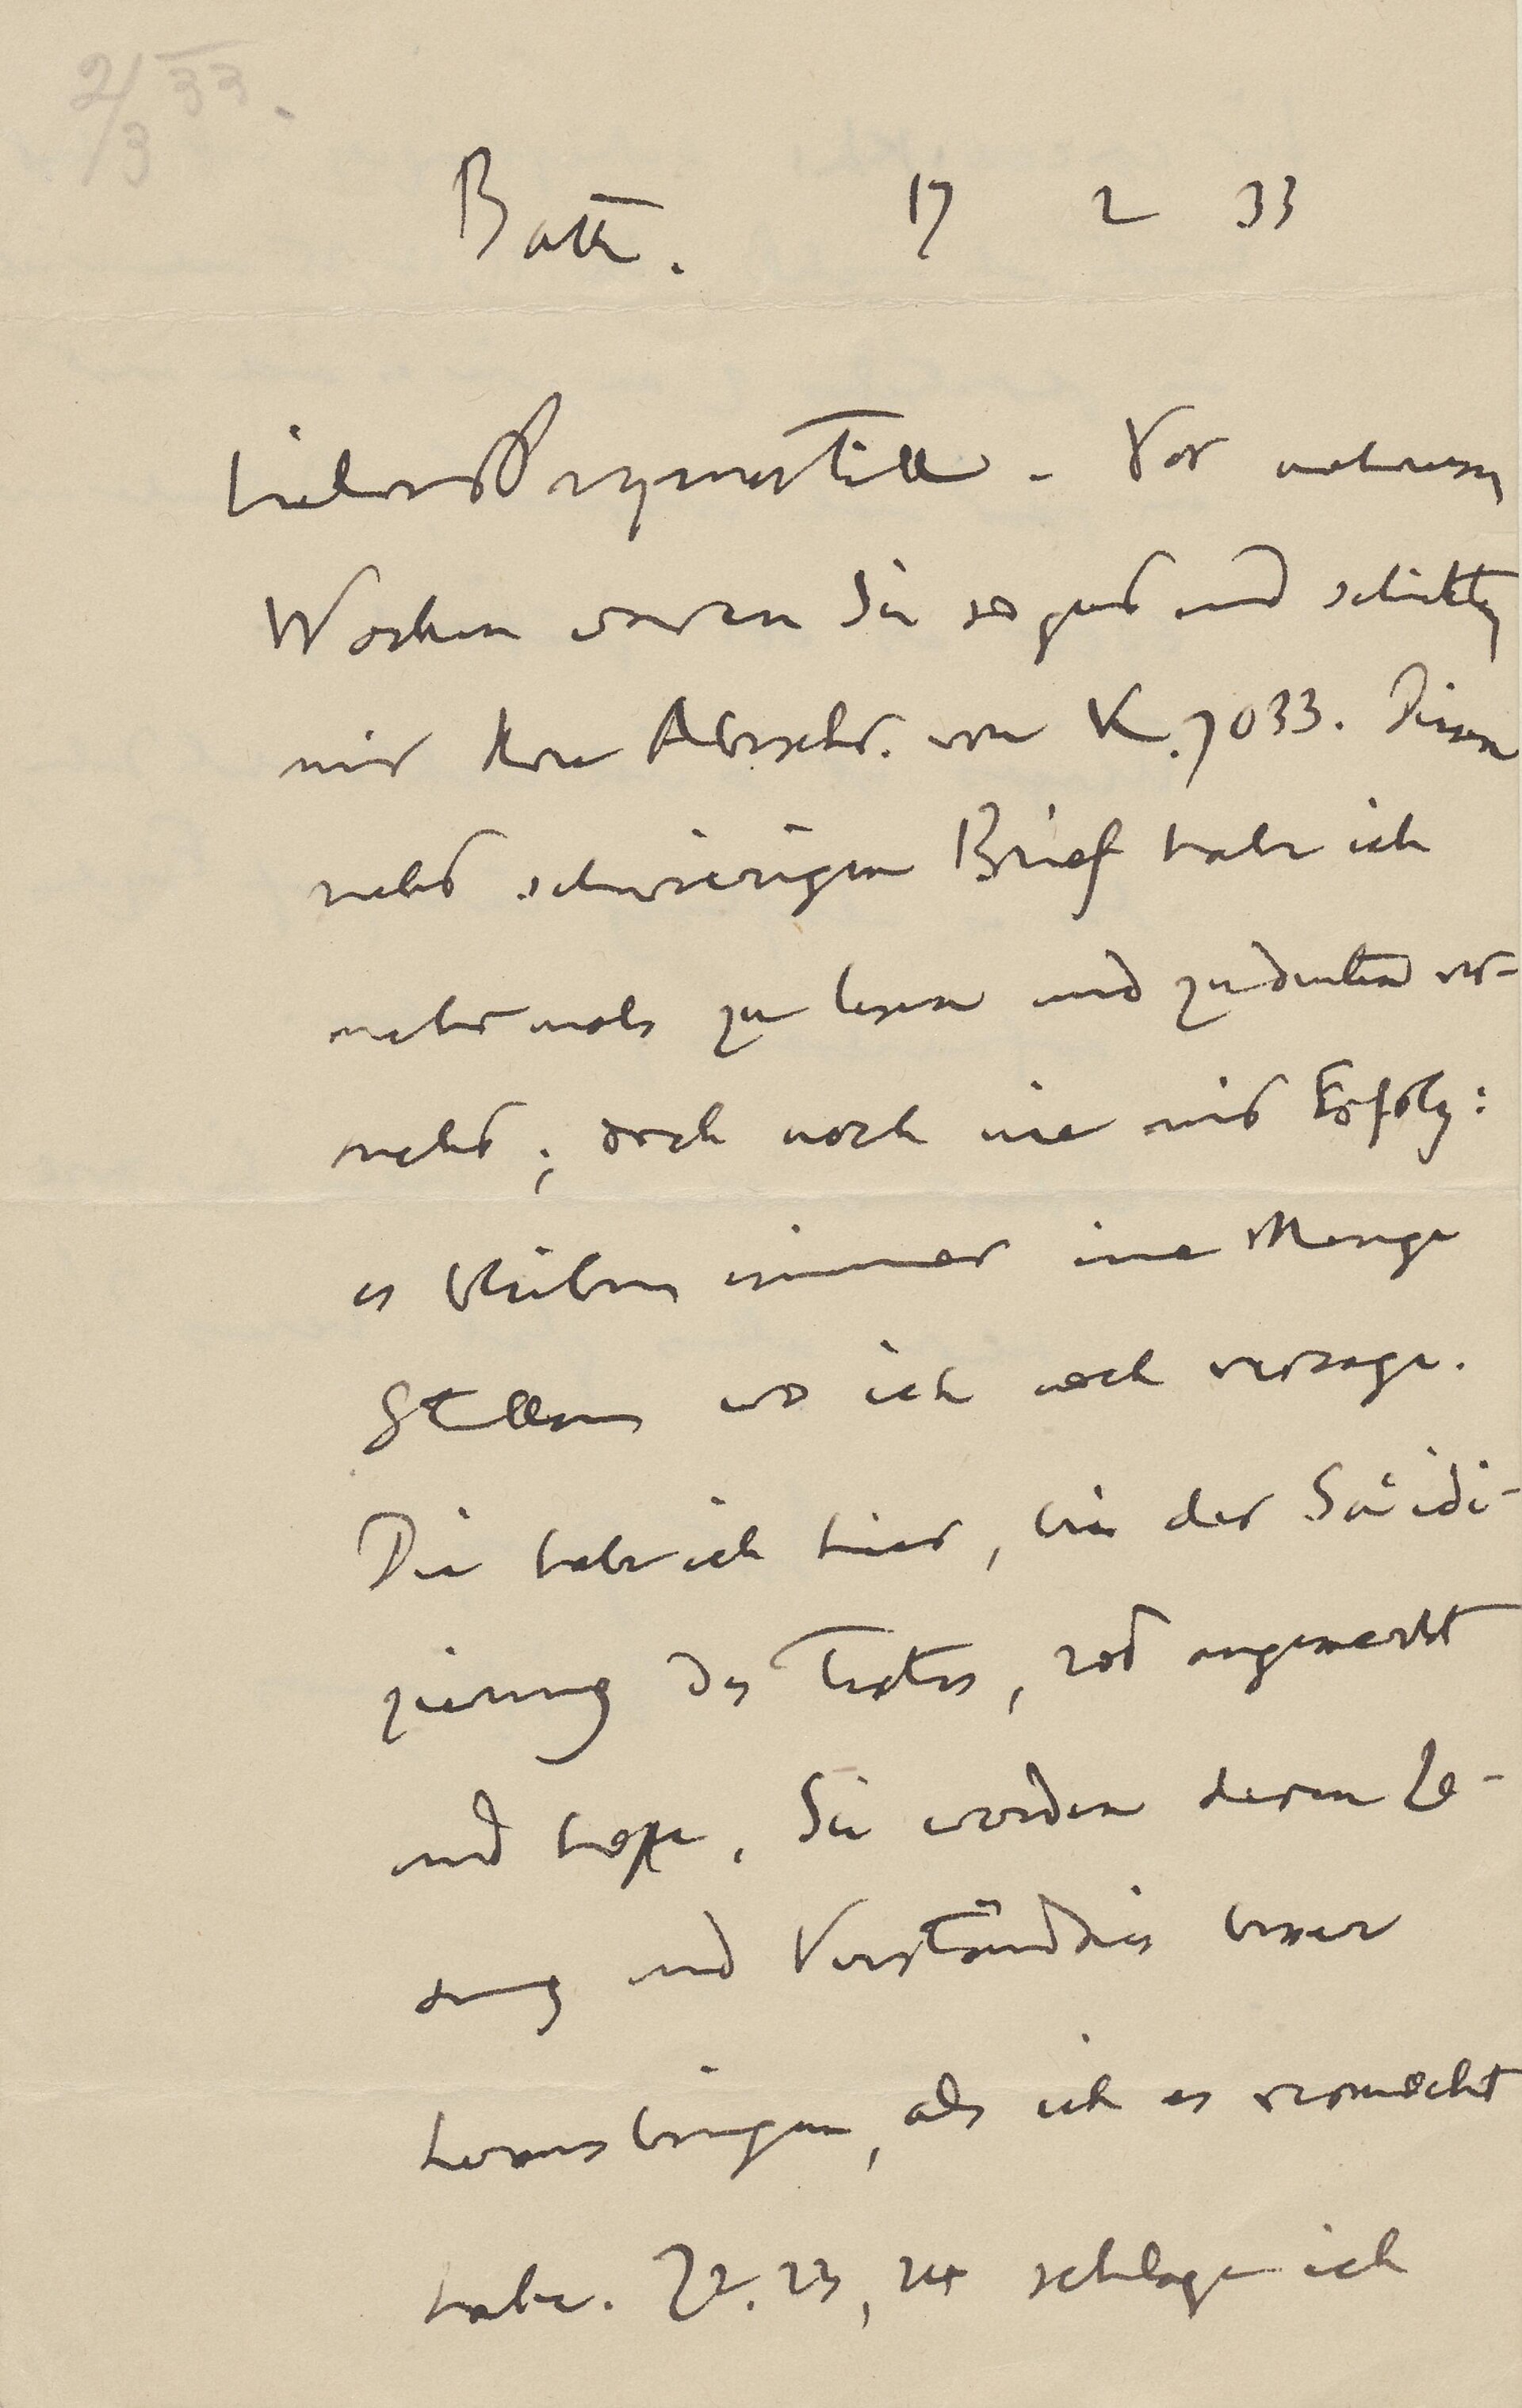 2/3 33.
Bath. 17 2 33
Lieber Grymestill. Vor mehreren
Wochen waren Sie so gut und schickten
mir Ihre Abschr. von K. 7033. Diesen
recht schwierigen Brief habe ich
mehrmals zu lesen und zu deuten ver-
sucht; doch noch nie mit Erfolg:
es bleiben immer eine Menge
Stellen wo ich noch versage.
Die habe ich hier, bei der Sa'idi-
zierung des Textes, rot angemerkt
und hoffe, Sie werden deren Le-
sung und Verständnis besser
herausbringen, als ich es vermocht
habe. Z2. 23, 24 schlage ich